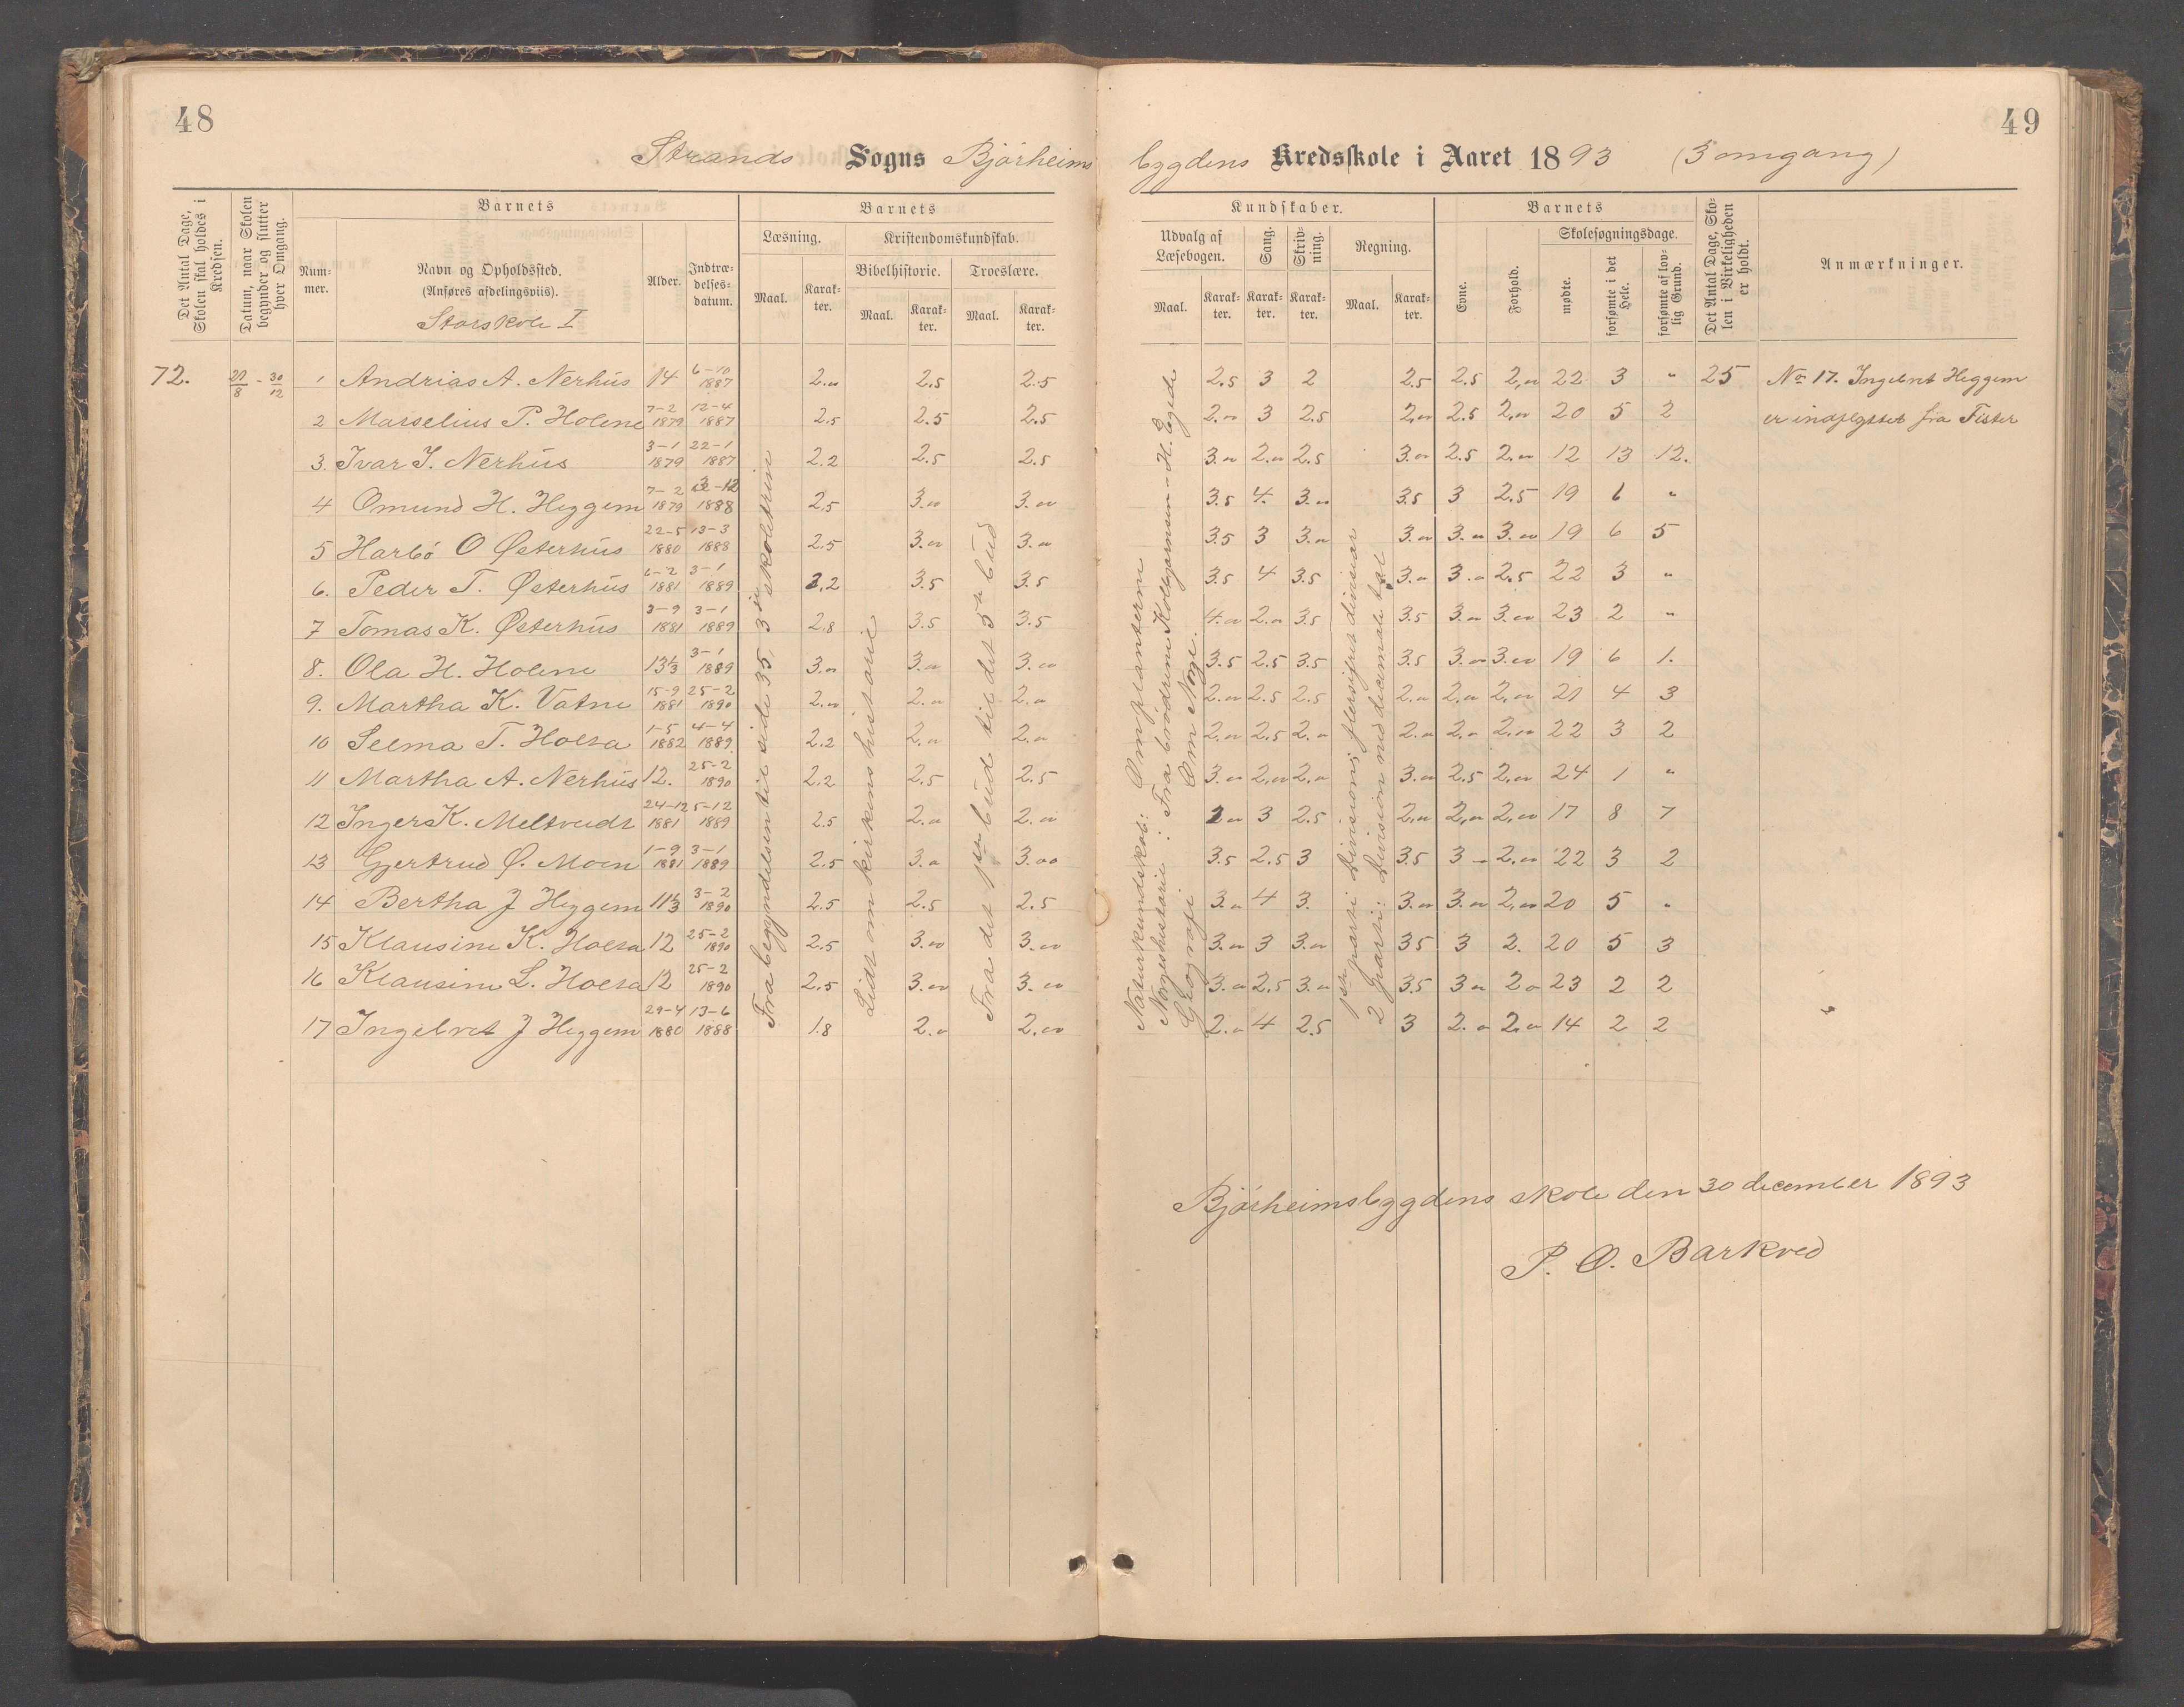 48
49
Strands Sogns Bjørheims bygdens Kredsskole i Aaret 1893 (3 omgang)
Det Antal Dage, Skolen skal holdes i Kredsen.
Datum, naar Skolen begynder og slutter hver Omgang.
Barnets
Nummer.
Navn og Opholdssted.
(Anføres afdelingsviis).
Storskole I
Alder.
Indtrædelsesdatum.
Barnets
Læsning.
Maal.
Karakter.
Kristendomskundskab.
Bibelhistorie.
Maal.
Karakter.
Troeslære.
Maal.
Karakter.
Kundskaber.
Udvalg af Læsebogen.
Maal.
Karakter.
Sang.
Karakter.
Skrivning.
Karakter.
Regning.
Maal.
Karakter.
Barnets
Evne.
Forhold.
Skolesøgningsdage.
mødte.
forsømte i det Hele.
forsømte af lovlig Grund.
Det Antal Dage, Skolen i Virkeligheden er holdt.
Anmærkninger.
72. 21/8 - 30/12 1 Andrias A. Nerhus 14 6-10 1887 2.00 2.5 2.5 2.5 3 2 2.5 2.5 2.00 22 3 " 25 No 17. Ingebret Heggem
2 Marselius P. Holene 7-2 1879 12-4 1887 2.5 2.5 2.5 2.00 3 2.5 2.00 2.5 2.00 20 5 2 er indflyttet fra Fister
3. Ivar J. Nerhus 3-1 1879 22-1 1887 2.2 2.5 2.5 3.00 2.00 2.5 3.00 2.5 2.00 12 13 12.
4 Omund H. Heggem 7-2 1879 -12 1888 2.5 3.00 3.00 3.5 4. 3.00 3.5 3 2.5 19 6 "
5 Harbo O Østerhus 22-5 1880 13-3 1888 2.5 3.00 3.00 3.5 3 3.00 3.00 3.00 3.00 19 6 5
6. Peder T. Østerhus 6-2 1881 3-1 1889 2,2 3.5 3.5 3.5 4 3.5 3.00 3.00 2.5 22 3 "
7 Tomas K. Østerhus 3-9 1881 3-1 1889 2.8 3.5 3.5 4.00 2.00 3.5 3.5 3.00 3.00 23 2 "
8. Ola H. Holene 13 1/3 3-1 1889 3.00 3.00 3.00 3.5 2.5 3.5 3.5 3.00 3.00 19 6 1.
9. Martha K. Vatne 15-9 1881 25-2 1890 2.00 2.00 2.00 2.00 2.5 2.5 2.00 2.00 2.00 21 4 3
10 Selma T. Holta 1-5 1882 4-4 1889 2.2 2.00 2.00 2.00 2.5 2.00 2.00 2.00 2.00 22 3 2
11 Martha A. Nerhus 12. 25-2 1890 2.2 2.5 2.5 3.00 2.00 2.00 3.00 2.5 2.00 24 1 "
12 Inger K. Meltveidt 24-12 1881 5-12 1889 2.5 2.00 2.00 2.00 3 2.5 2.00 2.00 2.00 17 8 7
13 Gjertrud Ø. Moen 1-9 1881 3-1 1889 2.5 3.00 3.00 3.5 2.5 3 3.5 3 2.00 22 3 2
14 Bertha J Heggem 11 1/3 3-2 1890 2.5 2.5 2.5 3.00 4 3. 3.00 3.00 2.00 20 5 "
15 Klausine K. Holta 12 25-2 1890 2.5 3.00 3.00 3.00 3 3.00 35 3 2. 20 5 3
16 Klausine L. Holta 12 25-2 1890 2.5 3.00 3.00 3.00 2.5 3.00 3.5 3.00 2.0 23 2 2
17 Ingebret J Heggem 29-4 1880 13-6 1888 1.8 2.00 2.00 2.00 4 2.5 3 2.00 2.00 14 2 2
Fra begyndelsen til side 35, 3die skoletrin
Lidt om kirkens historie
Fra det 1ste bud til det 5te bud
Naturkundskab: Om planterne
Norgeshistorie: Fra brødrene Kolbjørnsen - H. Egede
Geografi Om Norge.
1ste parti Division; flersifret divisor
2 parti: Division med decimale tal
Bjørheimsbygdens skole den 30 december 1893
P. O. Barkved